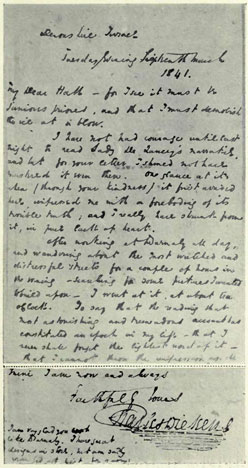 Devonshire Terrace
Tuesday Evening Sixteenth March
1841.
My Dear Hall – for I see it must be
"junious priores", and that I must demolish
the ice at a blow.
I have not had courage until last
night to read Lady De Lancey's narrative,
and but for your letter, I should not have
mustered it even then. One glance at it
when (through your kindness) it first arrived
had impressed me with a foreboding of its
terrible truth, and I really have shrunk from
it in pure lack of heart.
After working at Barnaby all day,
and wandering about the most wretched and
distressful streets for a couple of hours in
the evening – searching for some pictures I wanted
to build upon – I went at it, at about ten
o'clock. To say that the reading that
most astonishing and tremendous account has
constituted an epoch in my life – that I
never shall forget the lightest word of it –
that I cannot throw the impression aside
mine I am now and always
Faithfully Yours
Charles Dickens
I am very glad you
like Barnaby. I have great
designs in store, but am sadly